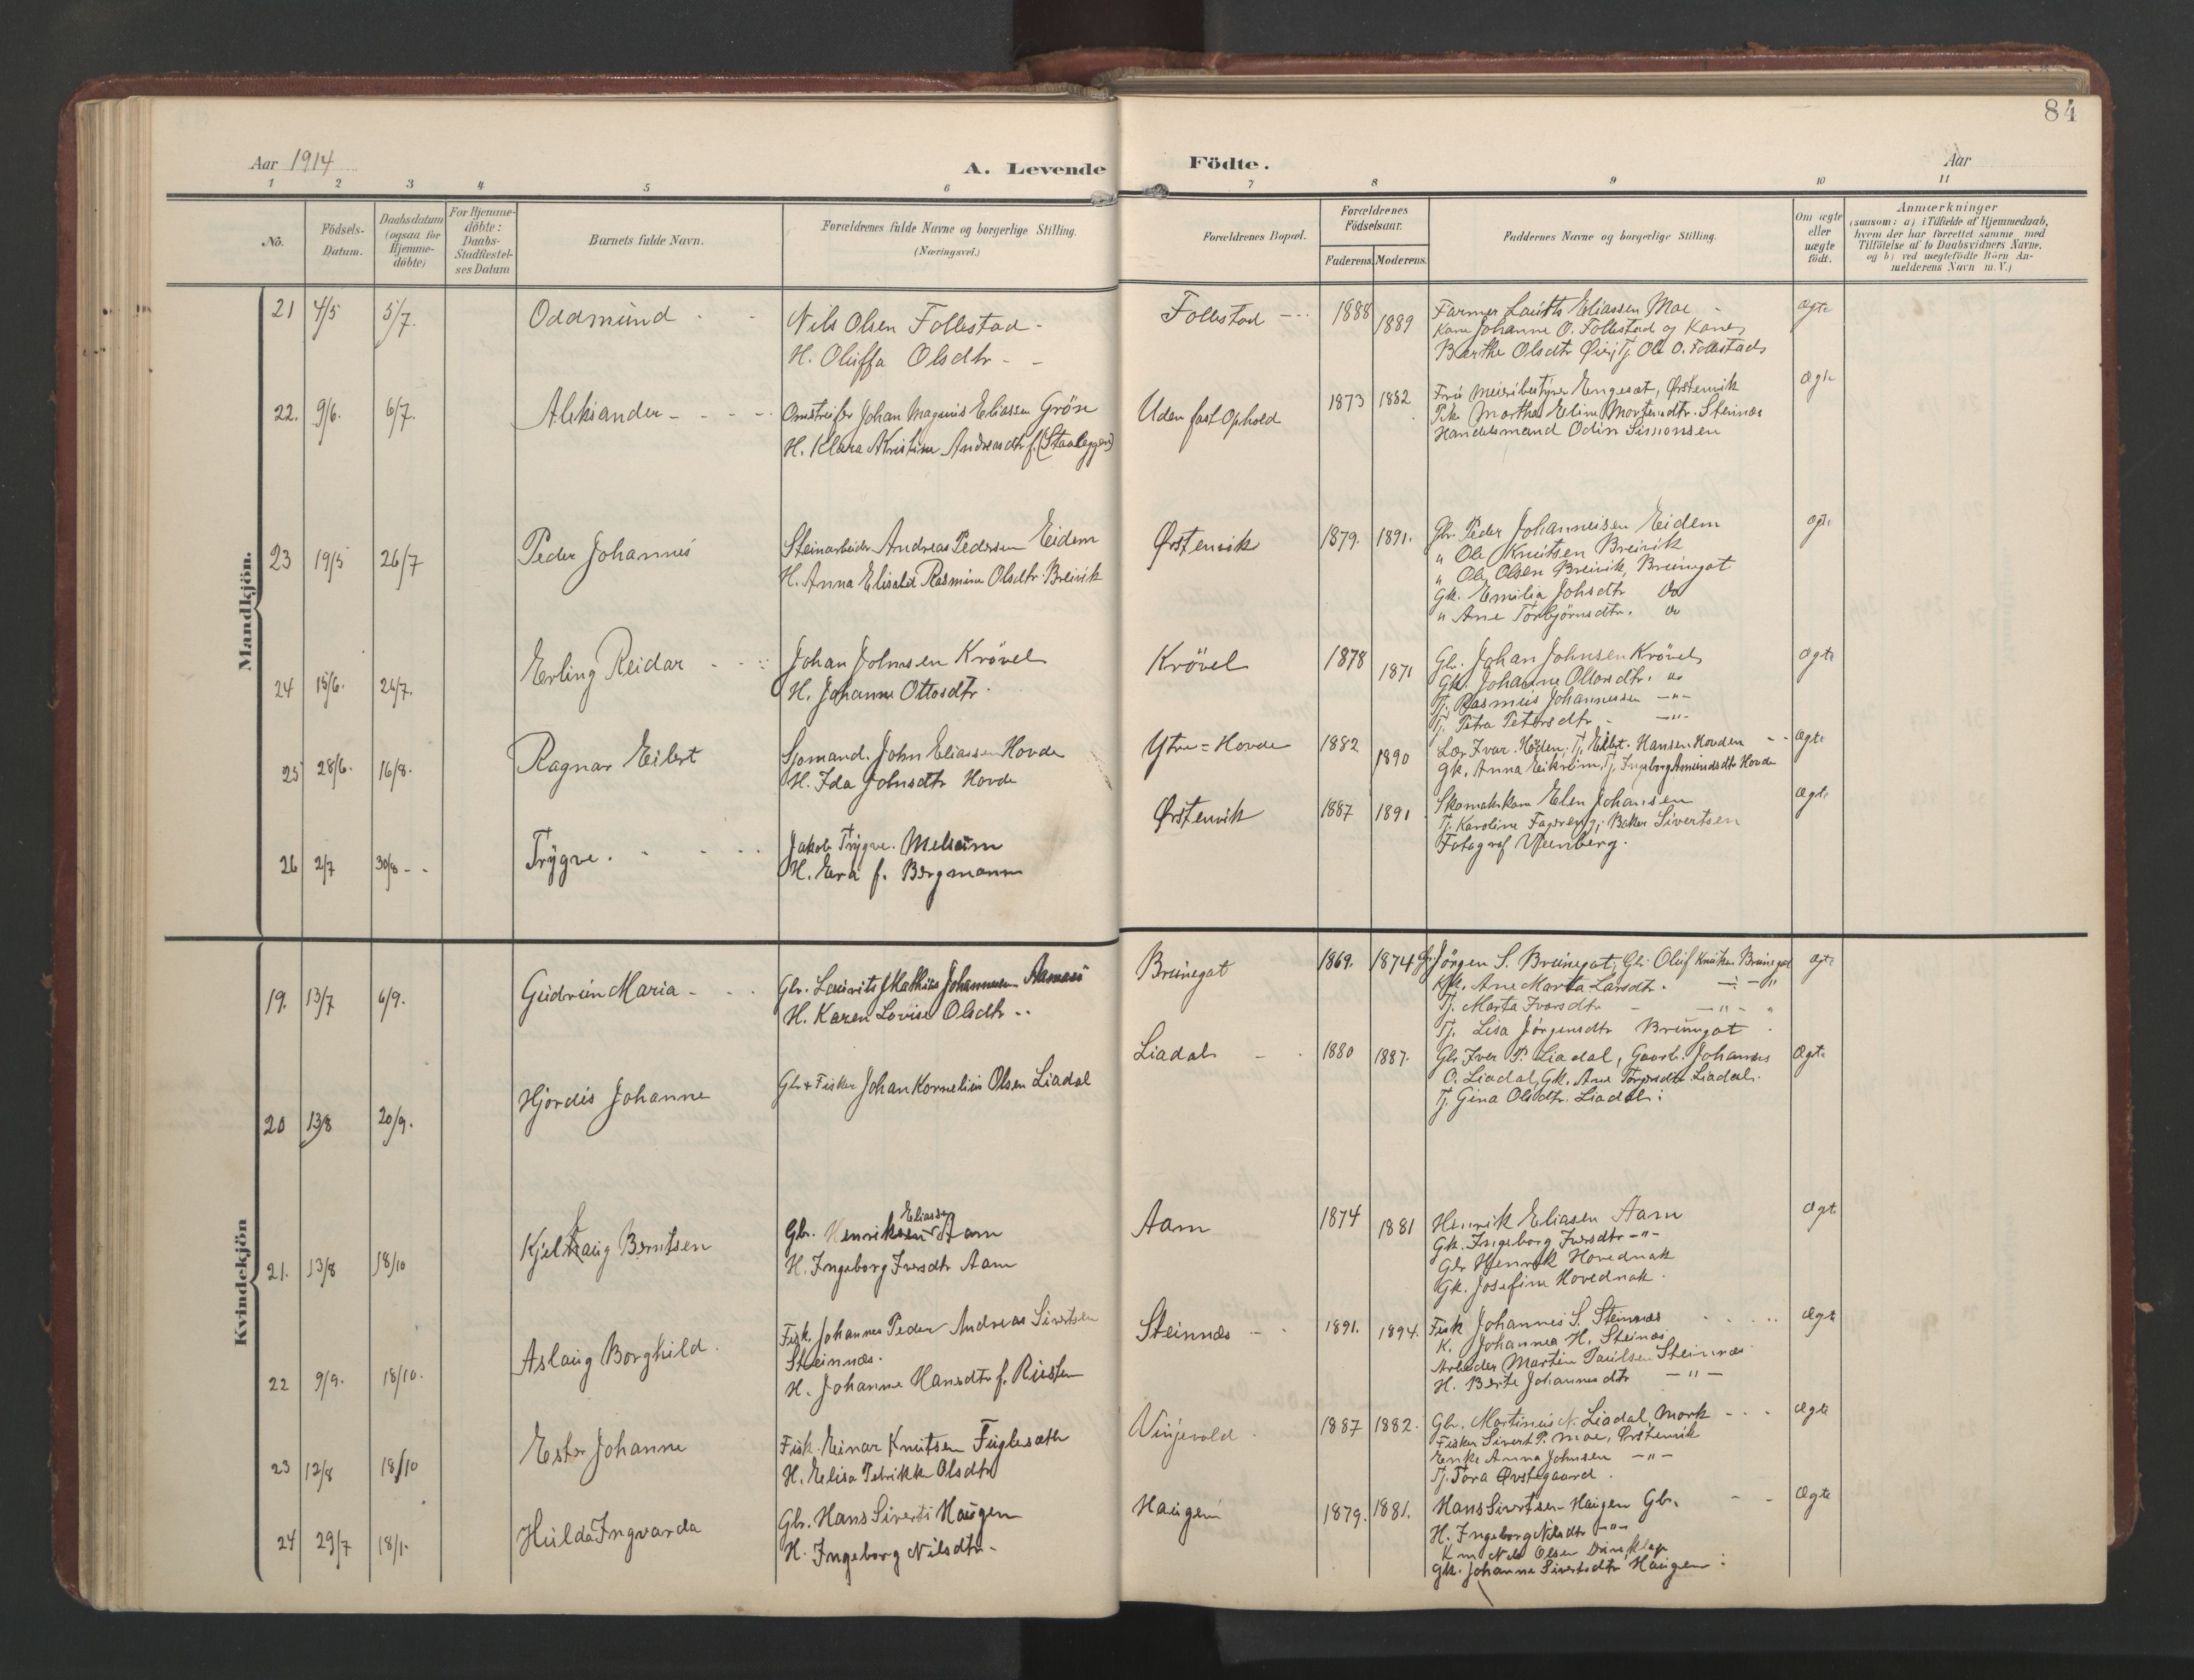 84
Aar 1914
A. Levende Födte.
Aar
1 2 3 4 5 6 7 8 9 10 11
No.
Födsels-Datum.
Daabsdatum (ogsaa for Hjemme-döbte)
For Hjemme-döbte: Daabs-Stadfæstel-ses Datum
Barnets fulde Navn.
Forældrenes fulde Navne og borgerlige Stilling. (Næringsvei.)
Forældrenes Bopæl.
Forældrenes Födselsaar.
Faderens. Moderens.
Faddernes Navne og borgerlige Stilling.
Om ægte eller uægte födt.
Anmærkninger
(saasom: a) i Tilfælde af Hjemmedaab,
hvem der har forrettet samme med
Tilföielse af to Daabsvidners Navne,
og b) ved uægtefödte Börn An-
melderens Navn m. V.)
Mandkjön.
21 4/5 5/7. Oddmund Nils Olsen Follestad
H. Oluffa Olsdtr
Follestad 1888 1889
Farmer Laurits Eliassen Moe
Kone Johanne O. Follestad og Kone
Berthe Olsdtr Øie, Tj. Ole O. Follestad
ægte
22. 9/6. 6/7. Aleksander Omstreifer Johan Magnus Eliassen Grön
H. Klara Kristine Andreasdtr f. (Staaleggen)
Uden fast Ophold 1873 1882
Fru Meieribestyrer Engeset, Ørstenvik
Pike Marthe Eline Mortensdtr. Steinnes
Handelsmand Odin Simonsen
Ægte
23 19/5 26/7 Peder Johannes
Steinarbeider Andreas Pedersen Eidem
H. Anna Elisabet Rasmine Olsdtr Breivik
Ørstenvik 1879. 1891.
Gbr. Peder Johannesen Eidem
" Ole Knutsen Breivik
" Ole Olsen Breivik, Brungot
Gk. Emilia Johsdtr do
" Ane Torbjörnsdtr. do
ægte
24 15/6. 26/7. Erling Reidar
Johan Johnsen Krövel
H. Johanne Ottosdtr.
Krövel 1878 1871
Gbr. Johan Johnsen Krövel
Gk. Johanne Ottosdtr. do
Tj. Rasmus Johannessen —"—
Tj. Petra Petersdtr —"—
ægte
25 28/6. 16/8. Ragnar Eilert
Sjömand. John Eliassen Hovde
H. Ida Johnsdtr Hovde
Ytre=Hovde 1882 1890
Lær. Ivar Hovden. Tj. Eilert Hansen Hovden
Gk. Anna Eikrem, Tj. Ingeborg Amundsdtr Hovde
Ægte
26 2/7 30/8 Trygve.
Jakob Trygve. Melseim
H. Eva f. Bergmann
Ørstenvik 1887 1891
Skomakerkone Elen Johansen
Tj. Karoline Fagereng; Baker Sivertsen
Fotograf Weenberg.
Ægte
Kvindekjön
19. 13/7 6/9. Gudrun Maria
Gbr. Laurits Mathias Johannessen Aamaas
H. Karen Lovise Olsdtr
Brungot 1869. 1874
Jörgen S. Brungot, Gbr. Oluf Knutsen Brungot
Gk. Ane Marta Larsdtr. —"
Tj. Marta Ivarsdtr —"—
Tj. Lisa Jörgensdtr Brungot
ægte
20 13/8 20/9. Hjordis Johanne
Gbr & Fisker Johan Kornelius Olsen Liadal
Liadal 1880 1887.
Gbr Iver P. Liadal, Gaarb. Johannes
O. Liadal, Gk. Ane Torgersdtr Liadal.
Tj. Gina Olsdtr. Liadal.
Ægte
21. 13/8 18/10 Kjellaug Berntsen
Gbr. Henrik Eliassen Aam
H. Ingeborg Iversdtr Aam
Aam 1874 1881
Henrik Eliasen Aam
Gk. Ingeborg Iversdtr —"—
Gbr Henrik Hovednak
Gk. Josefine Hovednak.
ægte
22 9/9. 18/10. Aslaug Borghild.
Fisk. Johannes Peder Andreas Sivertsen
Steinnæs.
H. Johanne Hansdtr f. Rusten
Steinnæs 1891. 1894.
Fisk Johannes S. Steinnæs
K. Johannea H. Steinnæs
Arbeider Martin Paulsen Steinnæs
H. Berte Johannesdtr —"—
Ægte
23 12/8 18/10 Ester Johanne
Fisk. Einar Knutsen Fuglesæth
H. Elisa Petrikke Olsdtr
Vinjevold 1887 1882.
Gbr. Martinus N. Liadal, Mork
Fisker Sivert P. Moe, Ørstenvik
Enke Anna Johnsen —"—
Tj. Tora Øvstegaard.
Ægte
24 29/7 18/1. Hulda Ingvarda
Gbr. Hans Siverts Haugen
H. Ingeborg Nilsdtr
Haugen 1879. 1881.
Hans Sivertsen Haugen Gbr.
H. Ingeborg Nilsdtr —"—
Nils Olsen
Gk. Johanna Sivertsdtr Haugen
Ægte